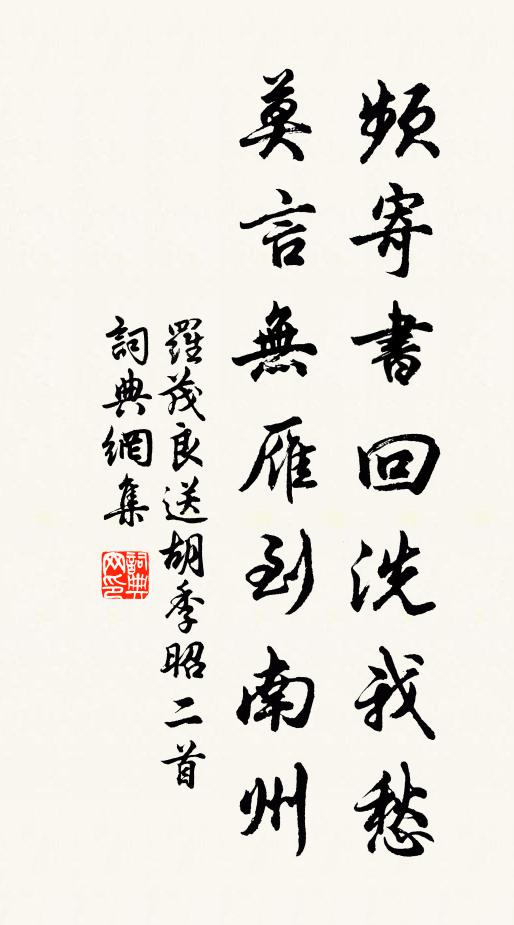 頻寄書回洗我愁
莫言無雁到南州
羅茂良送胡季昭二首
詞典網集
詞典网印